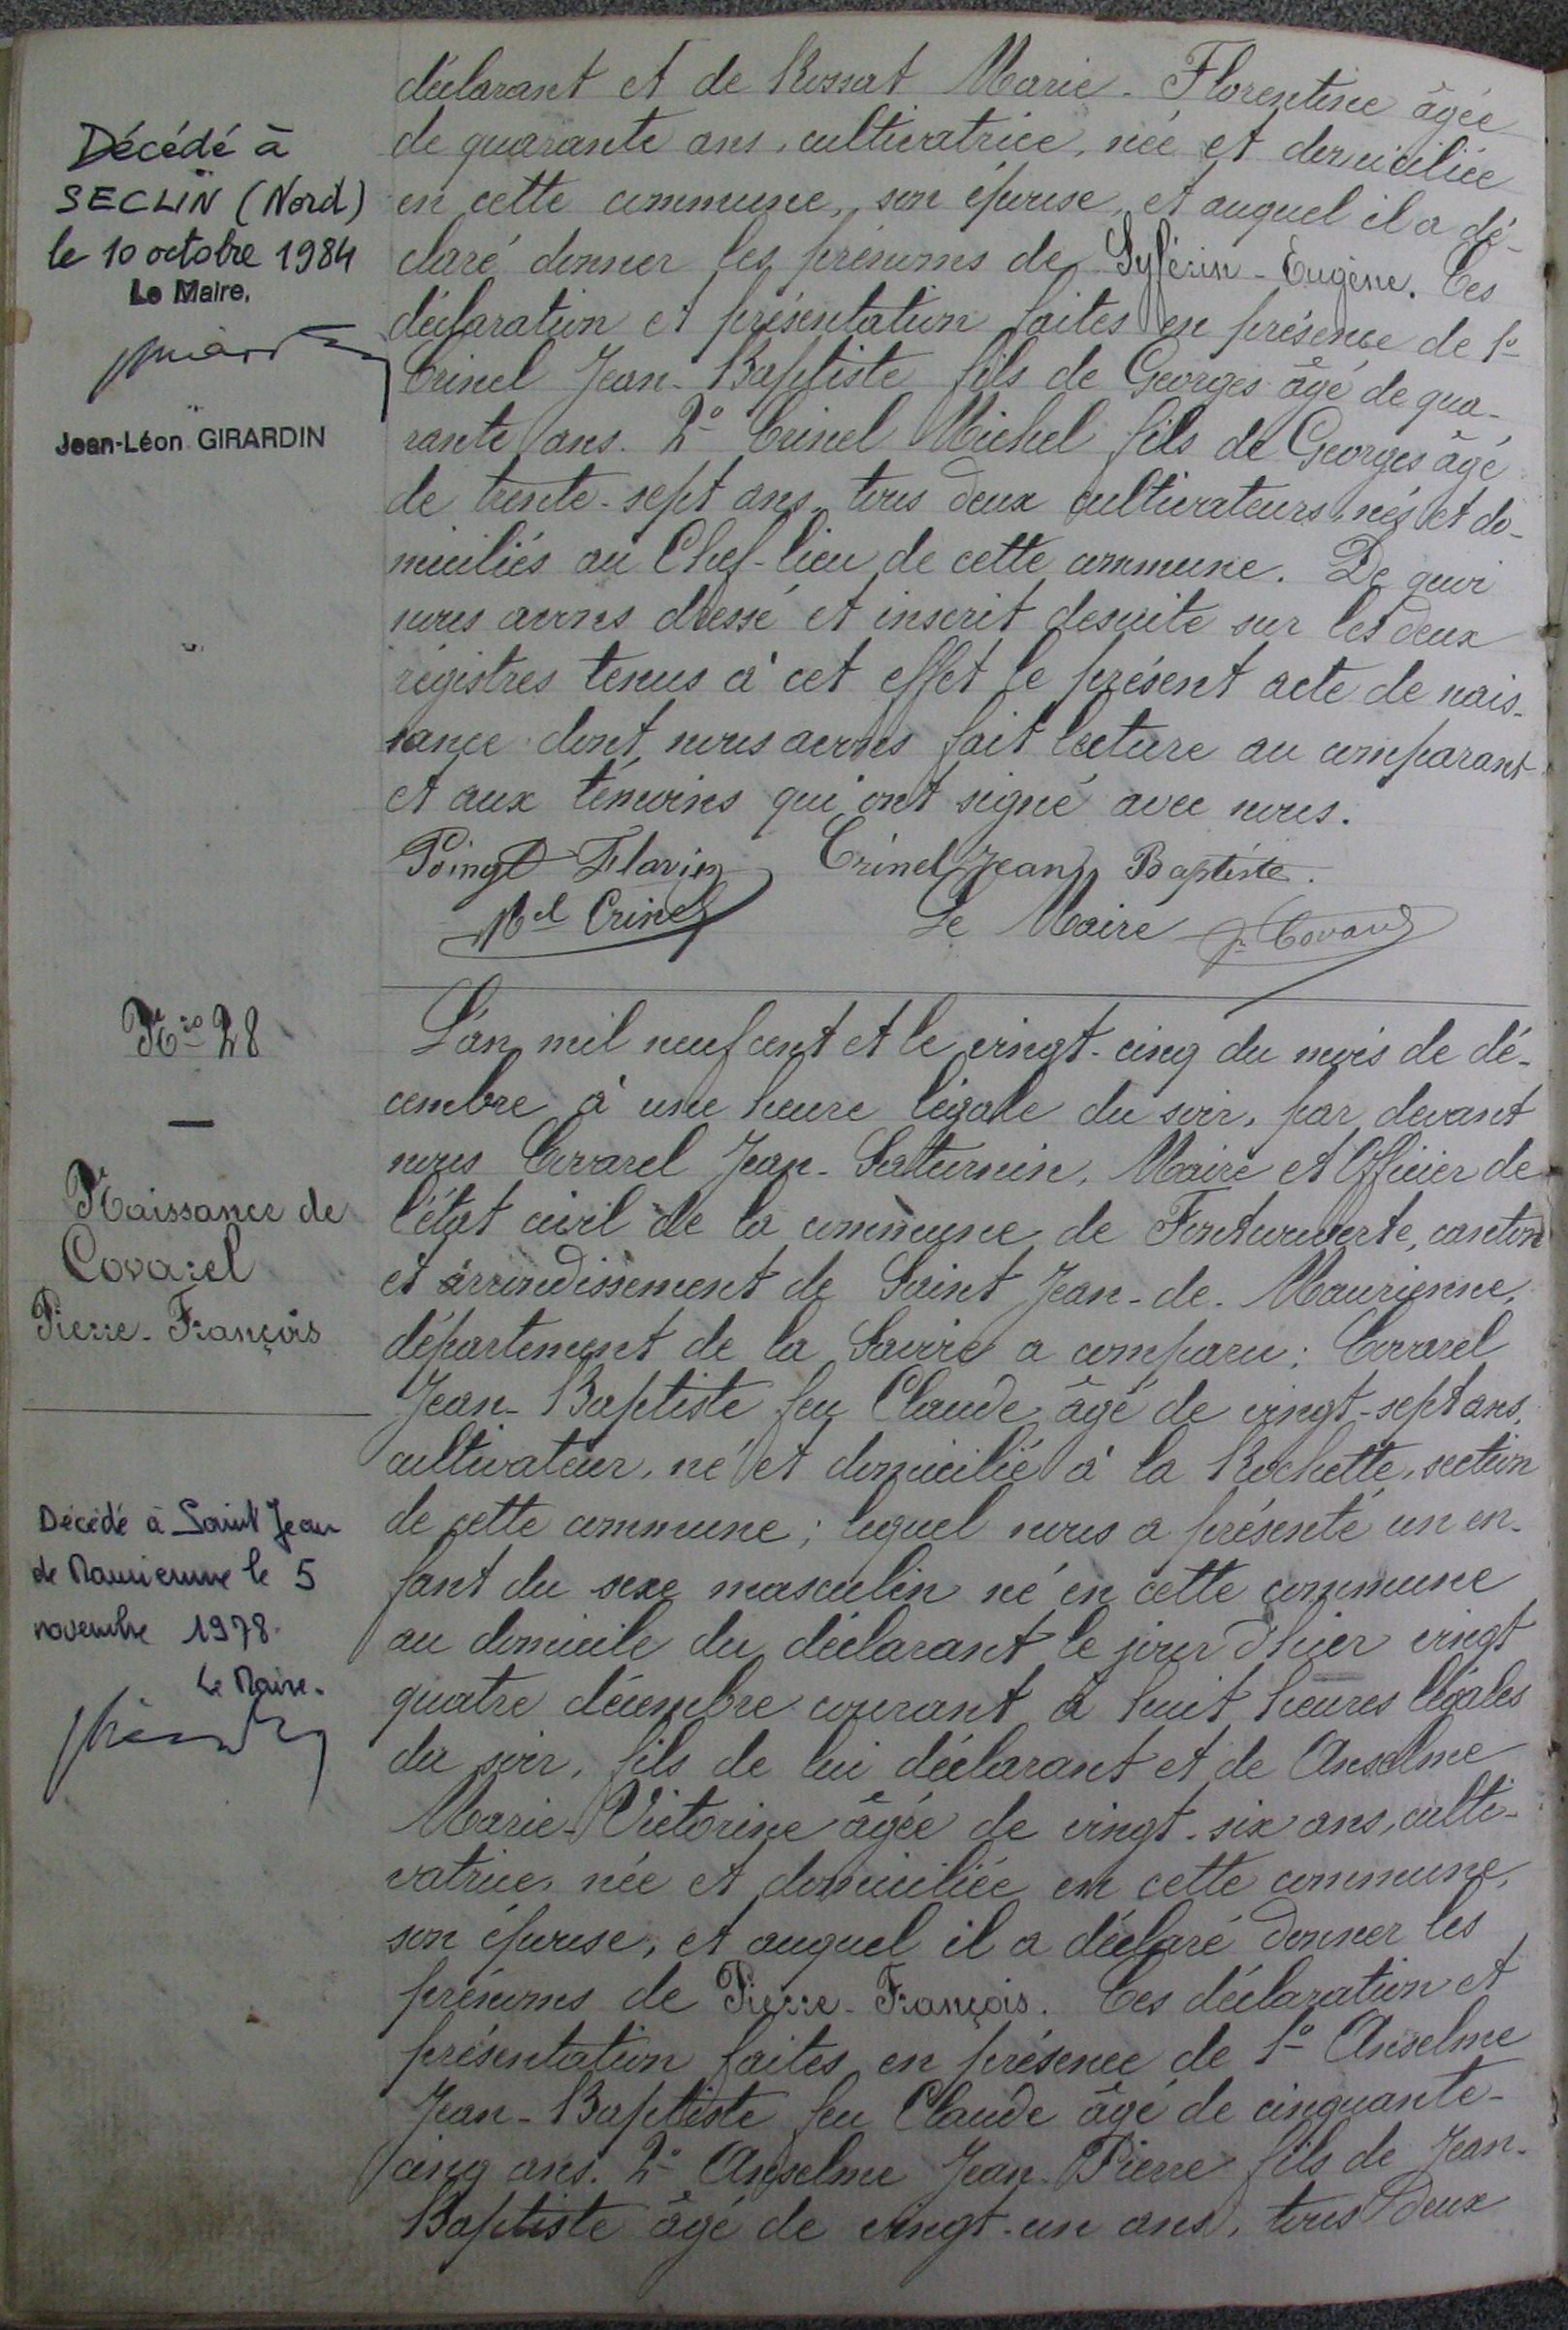 déclarant et de Rossat Marie-Florentine âgée
de quarante ans, cultivatrice, née et domiciliée
en cette commune, son épouse, et auquel il a dé-
claré donner les prénoms de Sylérin-Eugène. Ces
déclaration et présentation faites en présence de 1º
Crinel Jean-Baptiste fils de Georges âgé de qua-
rante ans. 2º Crinel Michel fils de Georges âgé
de trente-sept ans, tous deux cultivateurs, nés et do-
miciliés au Chef-lieu de cette commune. De quoi
nous avons dressé et inscrit desuite sur les deux
régistres tenus à cet effet le présent acte de nais-
sance dont nous avons fait lecture au comparant
et aux témoins qui ont signé avec nous.
Poingt Flavin Crinel Jean Baptiste.
Mel Crinel Le Maire J. Covarel
Décédé à
SECLIN (Nord)
le 10 octobre 1984
Le Maire,
Jean-Léon GIRARDIN
Nro 28
Naissance de
Covarel
Pierre-François
L'an mil neuf cent et le vingt-cinq du mois de dé-
cembre à une heure légale du soir, par devant
nous Covarel Jean-Saturnin, Maire et Officier de
l'état civil de la commune de Fontcouverte, canton
et arrondissement de Saint Jean-de-Maurienne,
département de la Savoie a comparu: Covarel
Jean-Baptiste feu Claude âgé de vingt-sept ans,
cultivateur, né et domicilié à la Rochette, section
de cette commune; lequel nous a présenté un en-
fant du sexe masculin né en cette commune
au domicile du déclarant le jour d'hier vingt
quatre décembre courant à huit heures légales
du soir, fils de lui déclarant et de Anselme
Marie-Victorine âgée de vingt-six ans, culti-
vatrice, née et domiciliée en cette commune,
son épouse, et auquel il a déclaré donner les
prénoms de Pierre-François. Ces déclaration et
présentation faites en présence de 1º Anselme
Jean-Baptiste feu Claude âgé de cinquante-
cinq ans. 2º Anselme Jean-Pierre fils de Jean-
Baptiste âgé de vingt-un ans, tous deux
Décédé à Saint Jean
de Maurienne le 5
novembre 1978.
Le Maire.